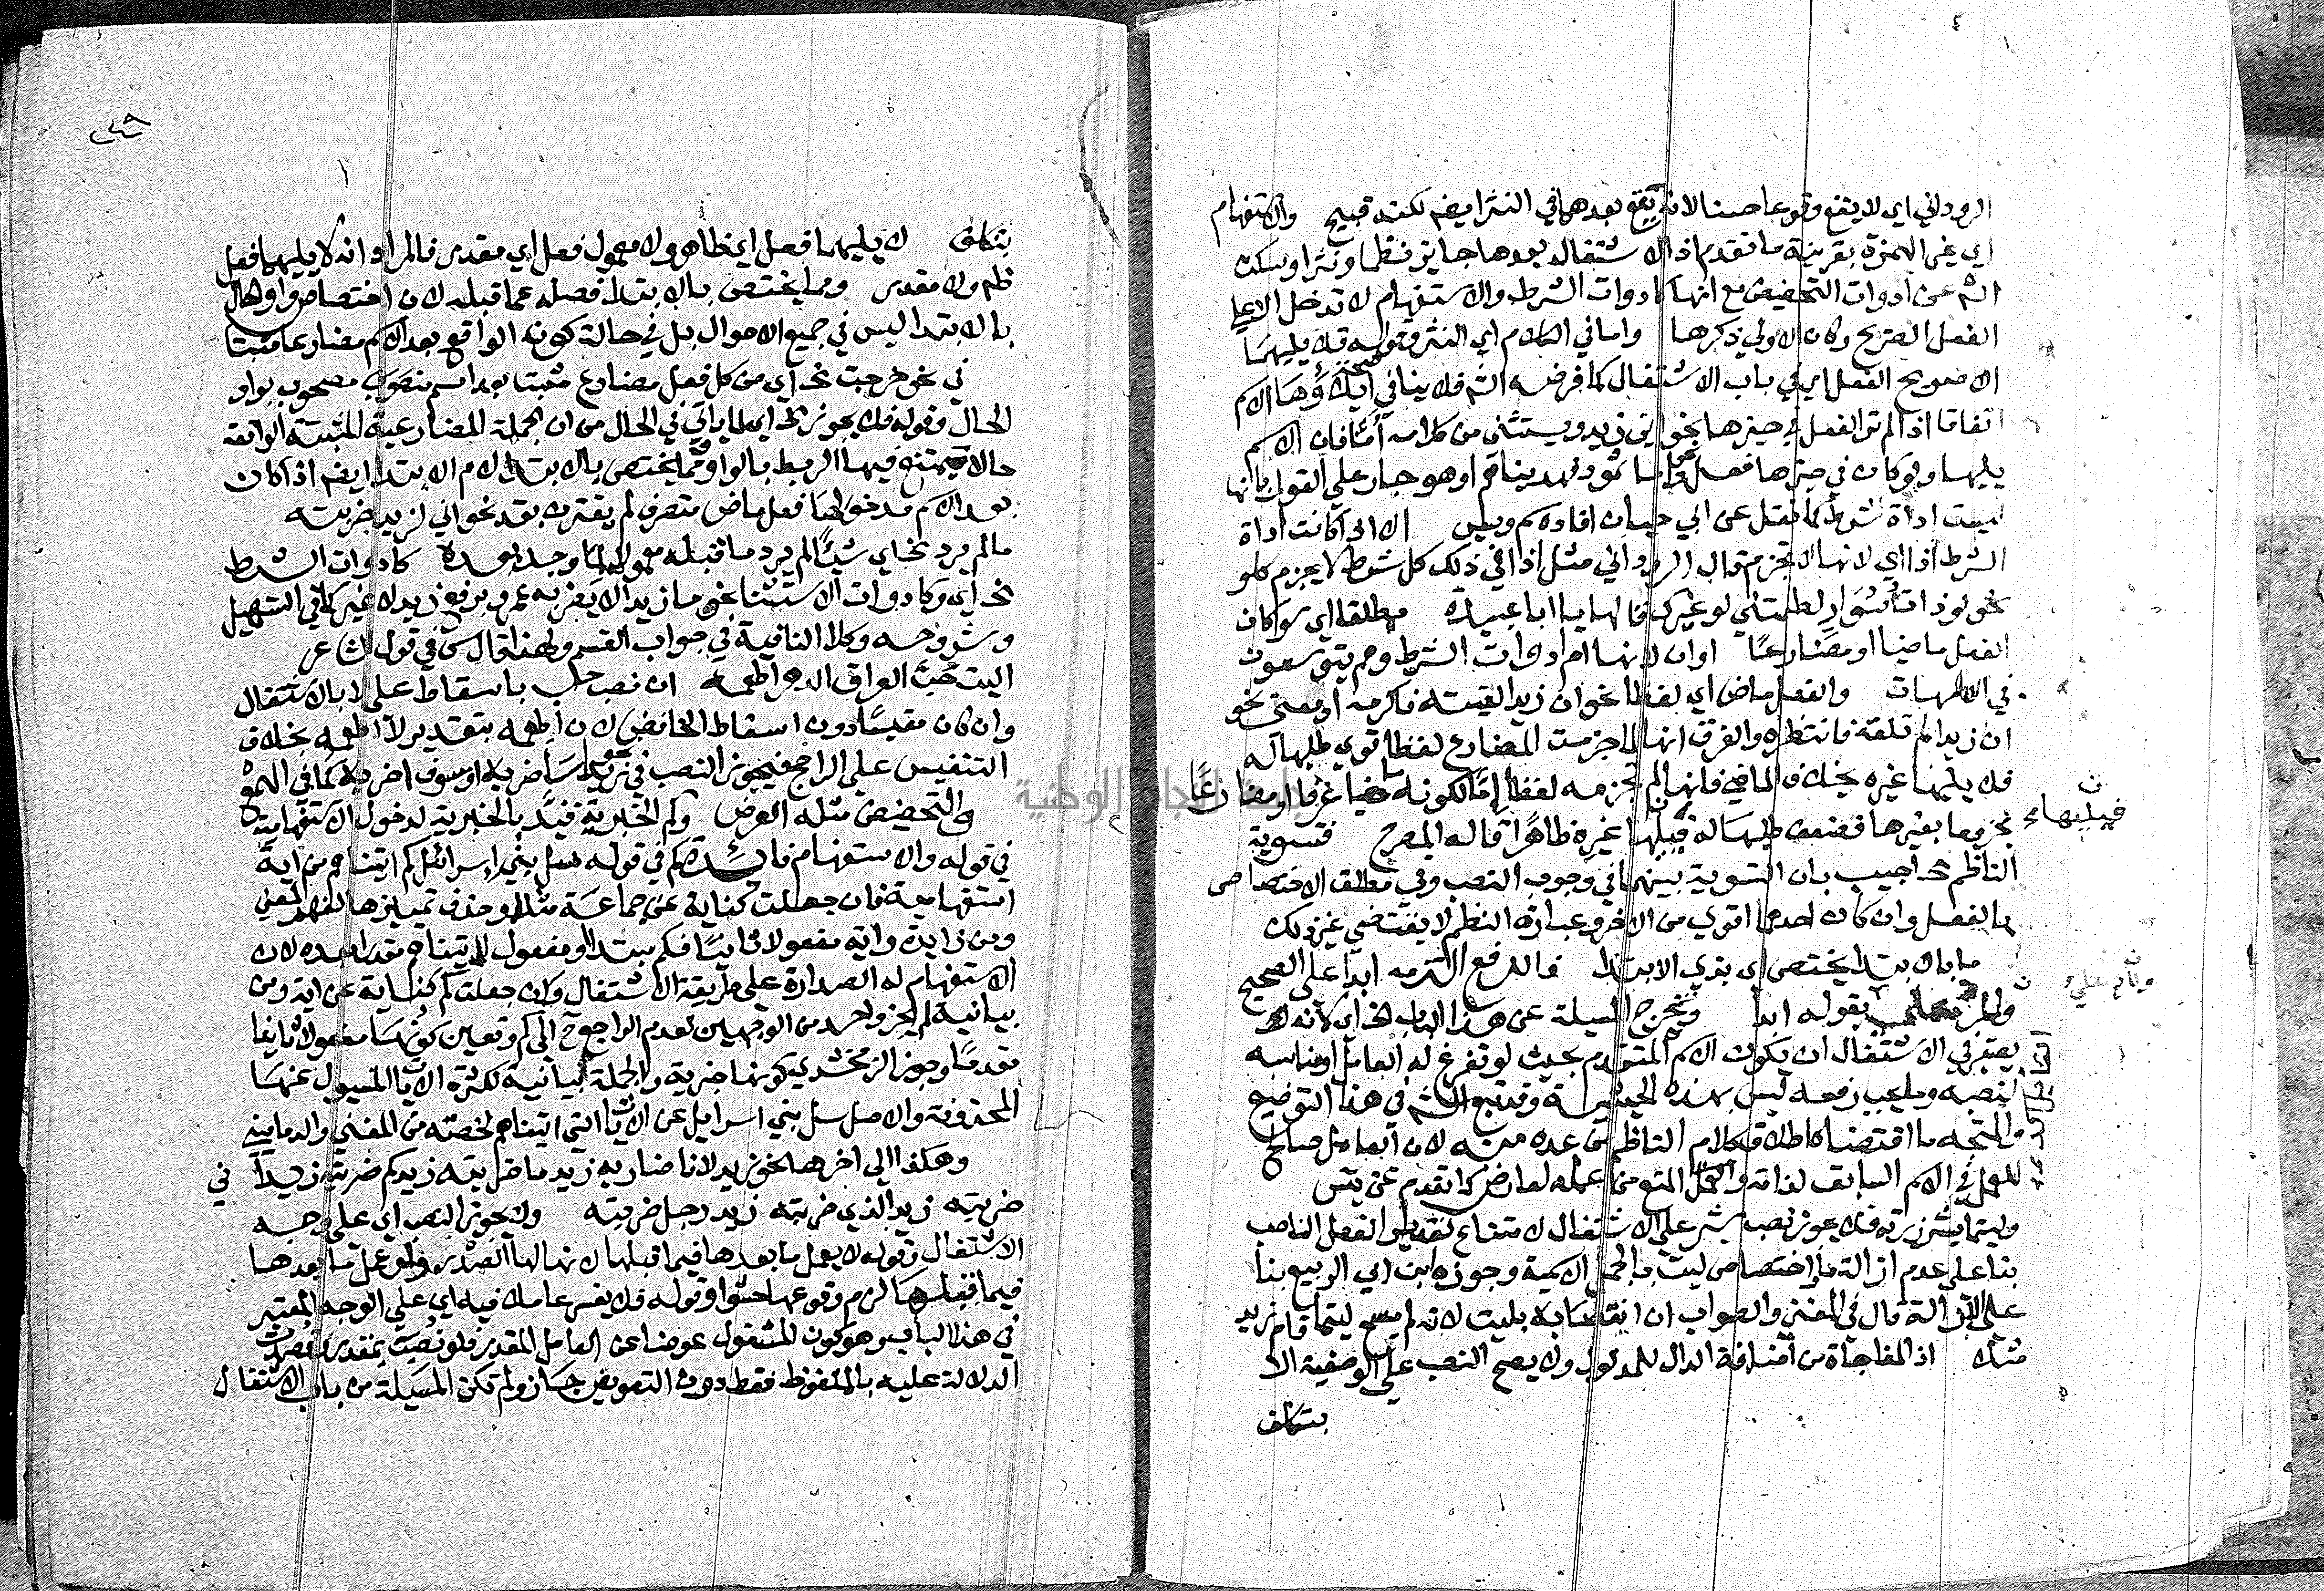 الروداني اي لا يقع وقوعا حسنا لانه يقع بعدهما في النثر ايضم لكنه قبيح والاستفهام
اي غير الهمزة بقرينة ما تقدم اذ الاشتغال بعدها جايز نظما ونثرا وسكت
الش عن ادوات التحضيض مع انها كادوات الشرط والاستفهام لا تدخل الا علي
الفعل الصريح وكان الاولي ذكرها واما في الكلام اي النثر وقوله فلا يليهما
الا صريح الفعل اي في باب الاشتغال كما فرضه الش فلا ينافي ايلاؤها الاسم
اتفاقا اذا لم تر الفعل في حيزها نحو اين زيد ويستثني من كلامه أما فان الاسم
يليها ولو كان في حيزها فعل نحو واما ثمود فهديناهم او هو جار علي القول بانها
ليست اداة شرط كما نقل عن ابي حيان افاده سم ويس الا اذا كانت اداة
الشرط اذا اي لانها لا تجزم قال الروداني مثل اذا في ذلك كل شرط لا يجزم كلو
نحو لو ذات سوار لطمتني لو غيرك قالها يا ابا عبيدة مطلقا اي سوا كان
الفعل ماضيا او مضارعا او ان لانها ام ادوات الشرط وهم يتوسعون
في الامهات والفعل ماض اي لفظا نحو ان زيدا لقيته فاكرمه او معني نحو
ان زيدا لم تلقه فانتظره والفرق انها لما جزمت المضارع لفظا قوي طلبها له
فلا يليها غيره بخلاف الماضي فانها لم تجزمه لفظا اما لكونه ماضيا او مضارعا
مجزوما بغيرها فضعف طلبها له فيليها غيره ظاهرا قاله المصرح فتسوية
فيليها
الناظم الخ اجيب بان التسوية بينهما في وجوب النصب وفي مطلق الاختصاص
بالفعل وان كان احدهما اقوي من الاخر وعبارة النظم لا يقتضي غير ذلك
ما بالابتدا يختص اي بذي الابتدا فالرفع التزمه ابدا علي الصحيح
بقوله ابدا ويخرج المسيلة عن هذا الباب الخ اي لانه
يعتبر في الاشتغال ان يكون الاسم المتقدم بحيث لو تفرغ له العامل او مناسبه
لنصبه وما يجب رفعه ليس بهذه الحيثية وقد تبع الش في هذا التوضيح
والمتجه ما اقتضاه اطلاق كلام الناظم من عده منه لان العامل صالح
للعمل في الاسم السابق لذاته والمنع من عمله لعارض كما تقدم عن يس
وليتما بشر زرته فلا يجوز نصب بشر علي الاشتغال لامتناع تقدير الفعل الناصب
بنا علي عدم ازالة ما اختصاص ليت بالجمل الاسمية وجوزه ابن ابي الربيع بنا
علي الازالة قال في المغني والصواب ان انتصابه بليت لانه لم يسمع ليتما قام زيد
مثلا اذا المفاجاة من اضافة الدال للمدلول ولا يصح النصب علي الوصفية الا
بتكلف
٢٤٩
بتكلف لا يليهما فعل اي ظاهر ولا معمول فعل اي مقدر فالمراد انه لا يليهما فعل
ظم ولا مقدر ومما يختص بالابتدا فصله عما قبله لان اختصاص واو الحال
بالابتدا ليس في جميع الاحوال بل في حالة كون الواقع بعد الاسم مضارعا مثبتا
في نحو خرجت الخ اي من كل فعل مضارع مثبتا بعد اسم منصوب مصحوب بواو
الحال وقوله فلا يجوز الخ اي لما ياتي في الحال من ان الجملة المضارعية المثبتة الواقعة
حالا يمتنع فيها الربط بالواو ومما يختص بالابتدا لام الابتدا ايضم اذا كان
بعد الاسم مدخولها فعل ماض متصرف لم يقترن بقد نحو اني لزيد ضربته
ما لم يرد الخ اي شيئا لم يرد ما قبله معمولا لما وجد بعده كادوات الشرط
الخ اي وكادوات الاستثنا نحو ما زيد الا يضربه عمرو برفع زيد لا غير كما في التسهيل
وشروحه وكلا النافية في جواب القسم ولهذا قال في قول الشاعر
اليت حب العراق الدهر اطعمه ان نصب حب باسقاط علي لا بالاشتغال
وان كان مقيسا دون اسقاط الخافض لان اطعمه بتقدير لا اطعمه بخلاف
التنفيس علي الراجح فيجوز النصب في نحو زيدا ساضربه او سوف اضربه كما في الهمع
والتحضيض مثله العرض وكم الخبرية قيد بالخبرية لدخول الاستفهامية
في قوله والاستفهام فائدة كم في قوله سل بني اسرائيل كم اتيناهم من اية
استفهامية فان جعلت كناية عن جماعة مثلا وحذف تمييزها لفهم المعني
ومن زايدة واية مفعولا ثانيا فكم مبتدا او مفعول لاتيناهم مقدرا بعده لان
الاستفهام له الصدارة علي طريقة الاشتغال وان جعلت كم كناية عن اية ومن
بيانية لم يجز واحد من الوجهين لعدم الراجع ح الي كم وتعين كونها مفعولا ثانيا
مقدما وجوز الزمخشري كونها خبرية والجملة بيانية لكثرة الايات المسيول عنها
المحذوفة والاصل سل بني اسرايل عن الايات التي اتيناهم لخصته من المغني والدماميني
وهكذا الي اخرها نحو زيد لانا ضاربه زيد ما ضربته زيد كم ضربته زيد اني
ضربته زيد الذي ضربته زيد رجل ضربته ولا يجوز النصب اي علي وجه
الاشتغال وقوله لا يعمل ما بعدها فيما قبلها لانها لها الصدر ولو عمل ما بعدها
فيما قبلها لزم وقوعها حشوا وقوله فلا يفسر عاملا فيه اي علي الوجه المعتبر
في هذا الباب وهو كون المشغول عوضا عن العامل المقدر فلو نصب بمقدر وقصدت
الدلالة عليه بالملفوظ فقط دون التعويض جاز ولم تكن المسيلة من باب الاشتغال